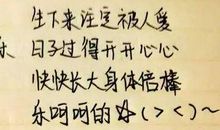 生下来注定被人爱
日子过得开开心心
快快长大身体倍棒
乐呵呵的 (><)~